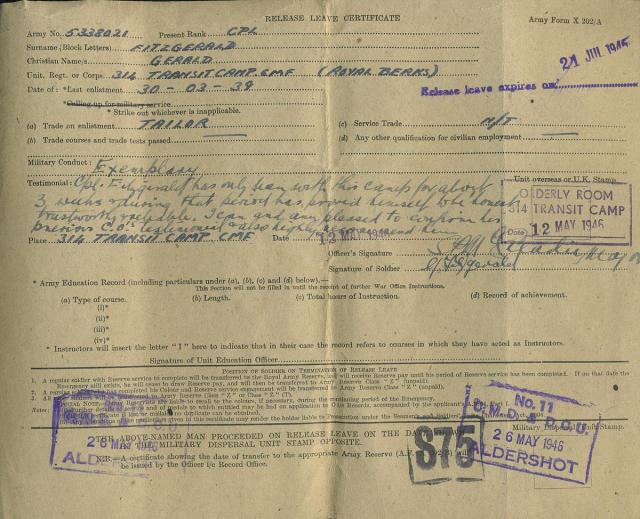 RELEASE LEAVE CERTIFICATE
Army Form X 202/A
Army No. 5338021 Present Rank CPL
Surname (Block Letters) FITZGERALD
Christian Name/s GERALD
Unit, Regt. or Corps. 314 TRANSIT CAMP CMF (ROYAL BERKS)
21 JUL 1946
Release leave expires on
Date of : *Last enlistment 30 - 03 - 39
*Calling up for military service
* Strike out whichever is inapplicable.
(a) Trade on enlistment TAILOR (c) Service Trade N/T
(b) Trade courses and trade tests passed (d) Any other qualification for civilian employment
Military Conduct : Exemplary
Testimonial: Cpl. Fitzgerald has only been with this camp for about
3 weeks & during that period has proved himself to be honest
trustworthy & reliable. I can and am pleased to confirm his
previous C.O's testimonial & also highly recommend him
Unit overseas or U.K. Stamp
ORDERLY ROOM
314 TRANSIT CAMP
Date 12 MAY 1946
Place 314 TRANSIT CAMP CMF Date 12 MAY 1946
Officer's Signature
Signature of Soldier G Fitzgerald
* Army Education Record (including particulars under (a), (b), (c) and (d) below).—
This Section will not be filled in until the receipt of further War Office Instructions.
(a) Type of course. (b) Length. (c) Total hours of Instruction. (d) Record of achievement.
(i)*
(ii)*
(iii)*
(iv)*
* Instructors will insert the letter "I" here to indicate that in their case the record refers to courses in which they have acted as Instructors.
Signature of Unit Education Officer
POSITION OF SOLDIER ON TERMINATION OF RELEASE LEAVE
1. A regular soldier with Reserve service to complete will be transferred to the Royal Army Reserve, and will receive Reserve pay until his period of Reserve service has been completed. If on that date the
Emergency still exists, he will cease to draw Reserve pay, and will then be transferred to Army Reserve Class "Z" (unpaid).
2. A regular soldier who has completed his Colour and Reserve service engagement will be transferred to Army Reserve Class "Z" (unpaid).
Military Dispersal Unit Stamp.
No. 11
26 MAY 1946
ALDERSHOT
THE ABOVE-NAMED MAN PROCEEDED ON RELEASE LEAVE ON THE DATE
THE MILITARY DISPERSAL UNIT STAMP OPPOSITE.
26 MAY 1946
ALDERSHOT
N.B.—A certificate showing the date of transfer to the appropriate Army Reserve
be issued by the Officer i/c Record Office.
S75